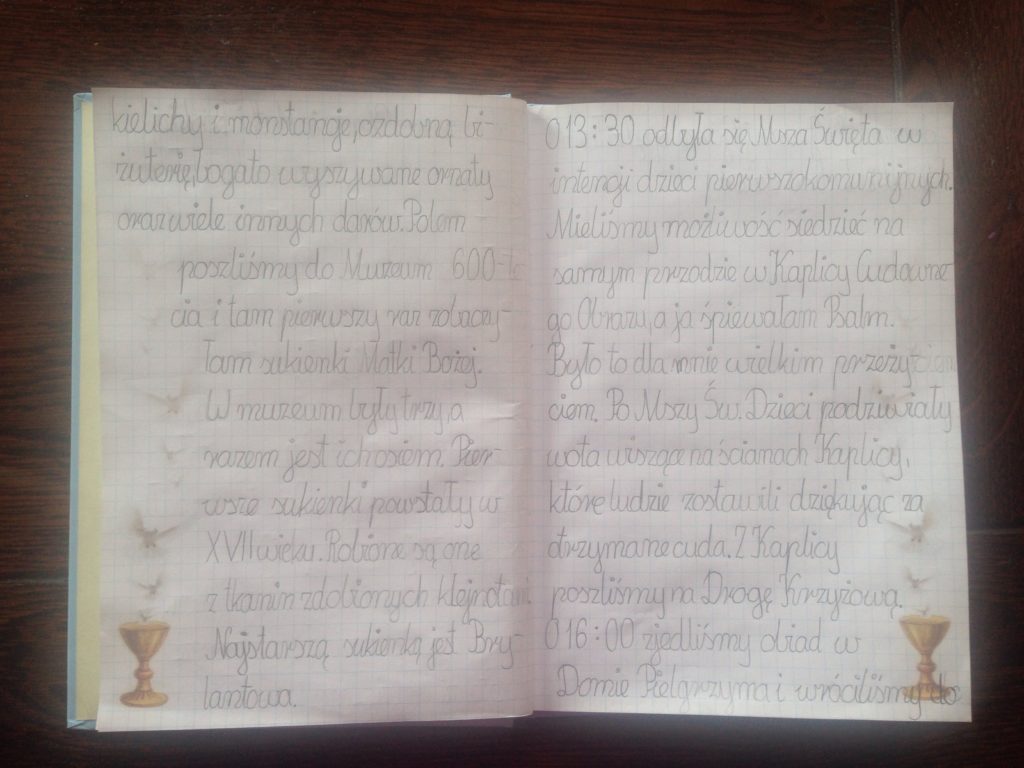 kielichy i monstrancje, ozdobną bi-
żuterię, bogato wyszywane ornaty
oraz wiele innych darów. Potem
poszliśmy do Muzeum 600-le
cia i tam pierwszy raz zobaczy-
łam sukienki Matki Bożej.
W muzeum były trzy a
razem jest ich osiem. Pier-
wsze sukienki powstały w
XVII wieku. Robione są one
z tkanin zdobionych klejnotami
Najstarszą sukienką jest Bry-
lantowa.
O 13:30 odbyła się Msza Święta w
intencji dzieci pierwszokomunijnych.
Mieliśmy możliwość siedzieć na
samym przodzie w Kaplicy Cudowne
go Obrazu, a ja śpiewałam Psalm.
Było to dla mnie wielkim przeżyciem
ciem. Po Mszy Św. Dzieci podziwiały
wota wiszące na ścianach Kaplicy,
które ludzie zostawili dziękując za
otrzymane cuda. Z Kaplicy
poszliśmy na Drogę Krzyżową.
O 16:00 zjedliśmy obiad w
Domu Pielgrzyma i wróciliśmy do